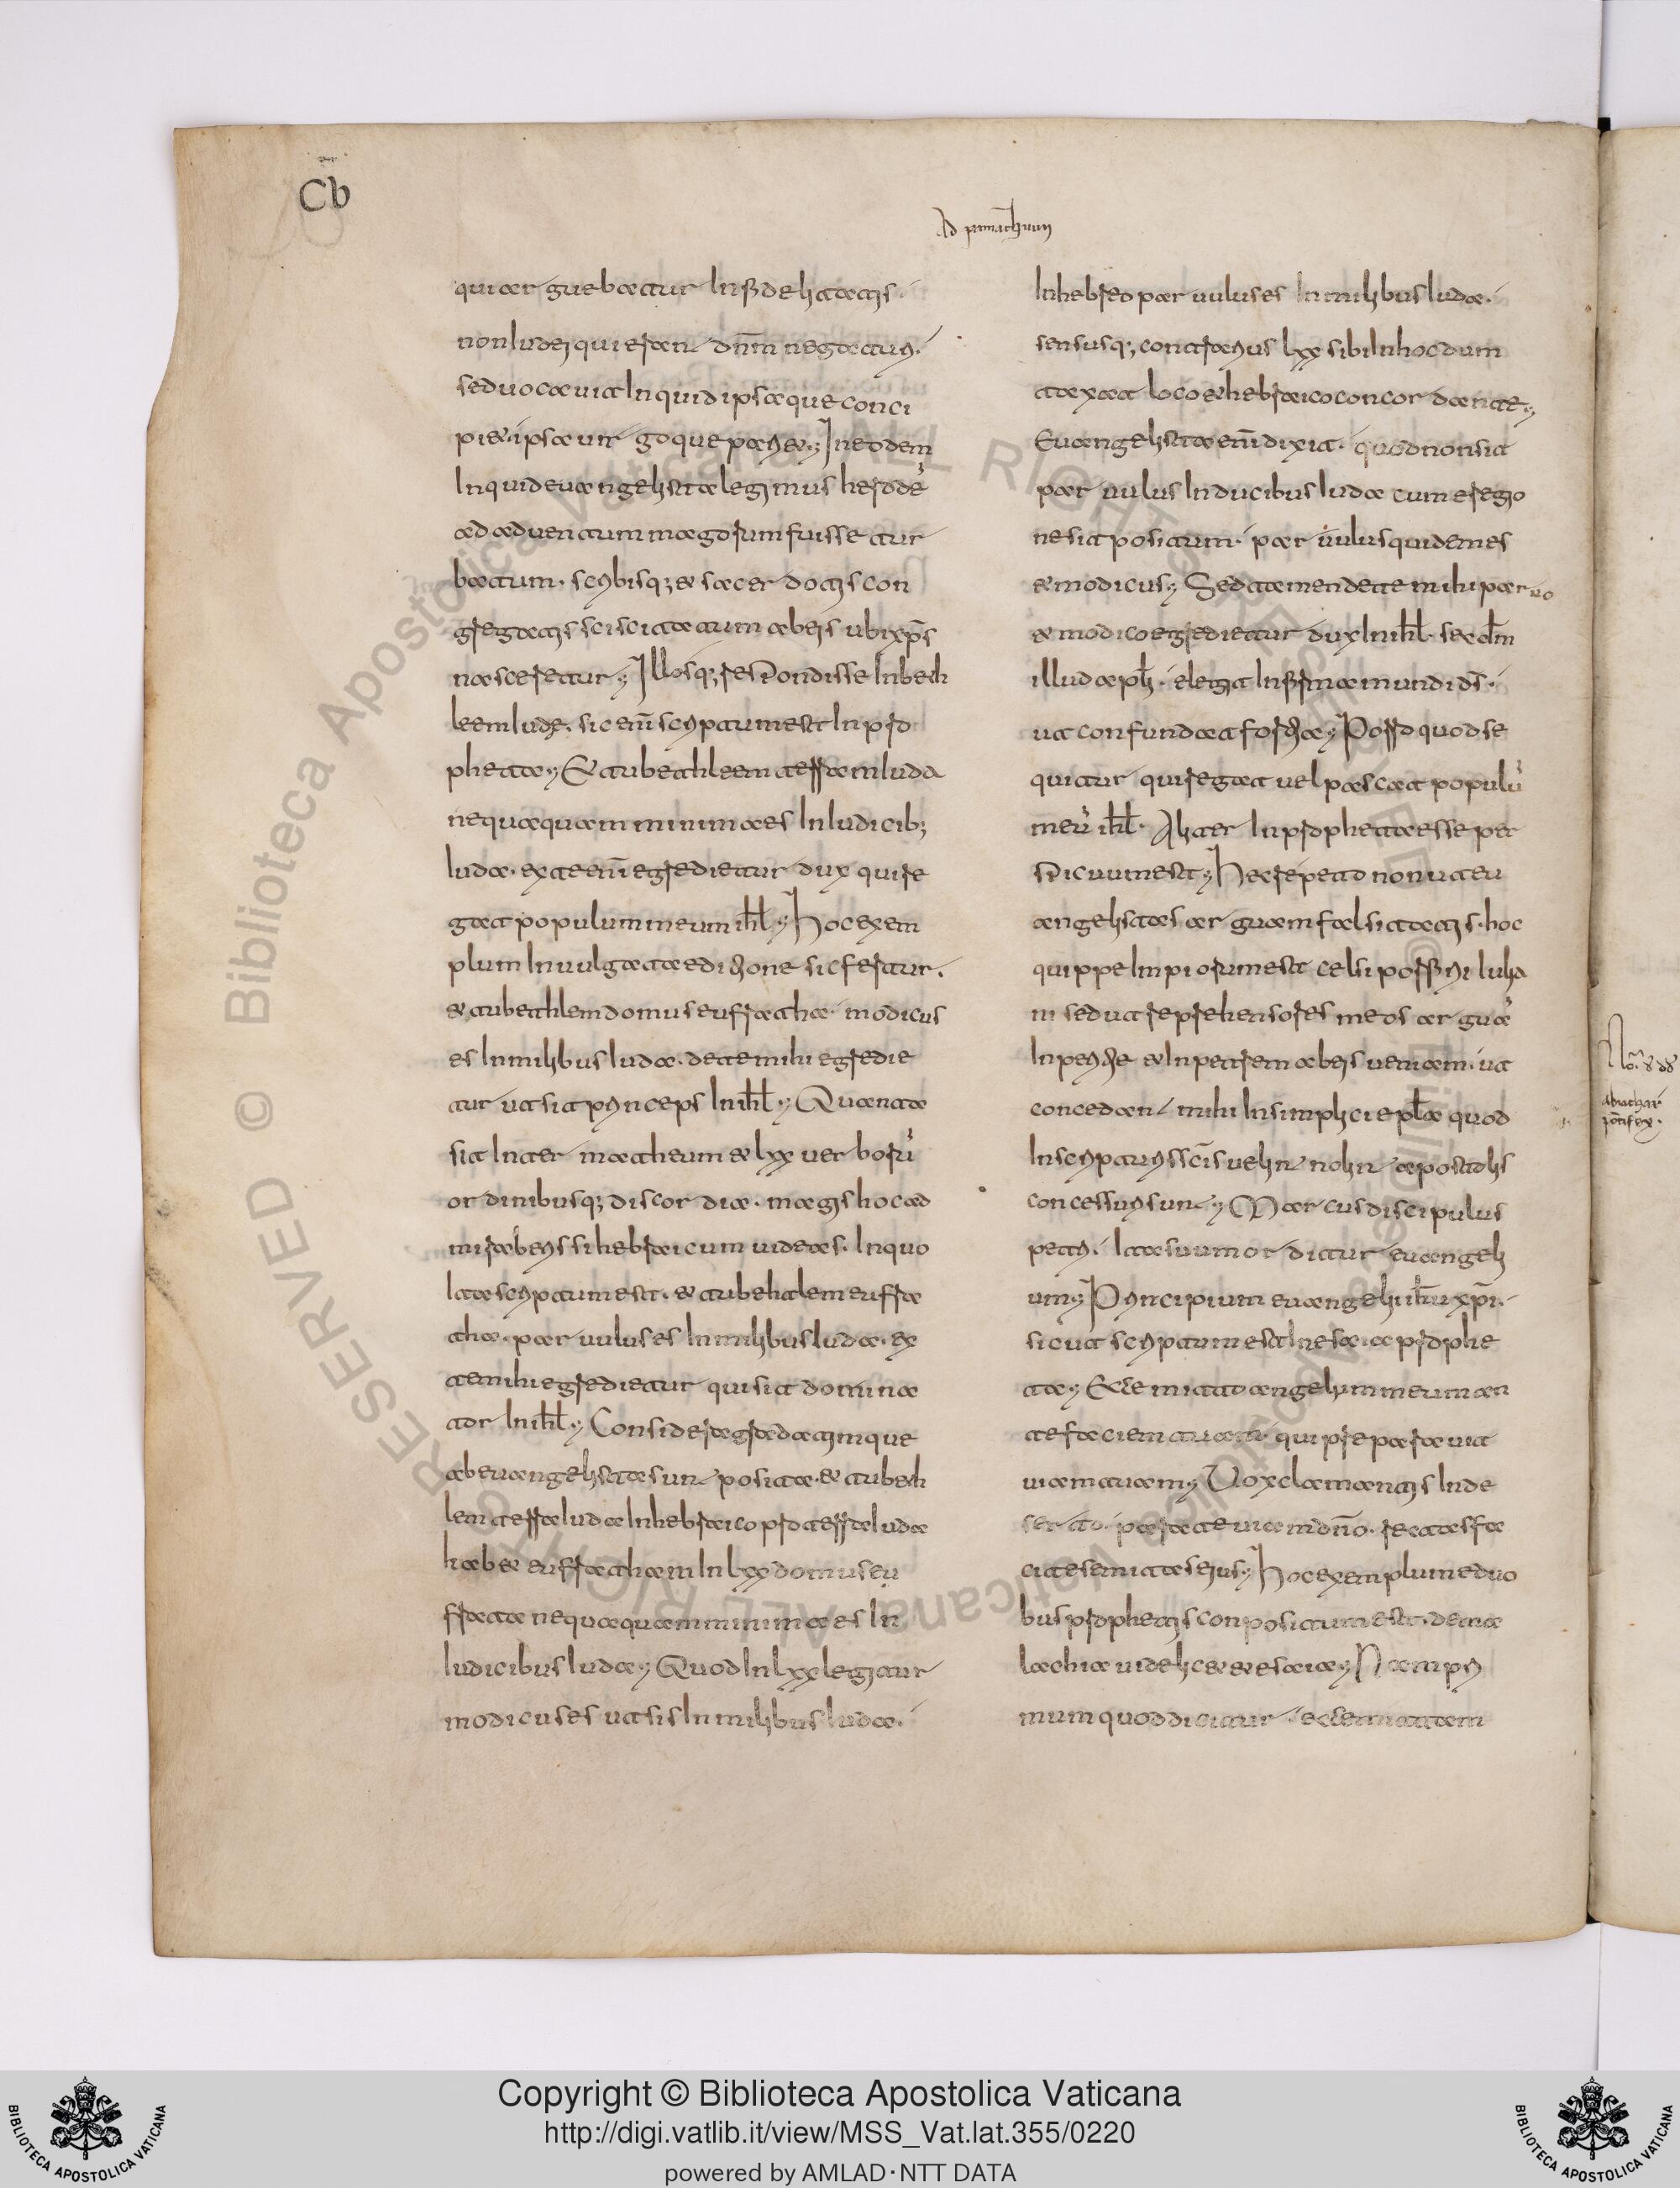 Cb
Ad pamachium
qui arguebatur infidelitatis.
non iudei qui eran dnm negaturi.
sed uocauit inquid ipsa que conci
piet. ipsa uirgo que pariet; In eodem
inquid euangelista legimus herode
ad aduentum magorum fuisse tur
batum. scribisq; et sacerdotis con
gregatis sciscitatum ab eis ubi xps
nasceretur; Illosq; respondisse in beth
leem iude. sic eni scriptum est in pro
pheta; Et tu bethleem terra iuda
nequaquam minima es in iudicib;
iuda. ex te eni egredietur dux qui re
gat populum meum ihl; Hoc exem
plum in uulgata editione sic fertur.
et tu bethlem domus eufratha. modicus
es in milibus iuda. de te mihi egredie
tur ut sit princeps in ihl; Quanta
sit inter matheum et lxx uerboru
ordinibusq; discordia. magis hoc ad
miraberis si hebraicum uideas. In quo
ita scriptum est. et tu behtlem eufra
tha. paruulus es in milibus iuda. ex
te mihi egredietur qui sit domina
tor in ihl; Considera gradatimque
ab euangelista sun posita. et tu beth
lem terra iuda in hebraico pro terra iuda
habet eufratham in lxx domus eu
frata nequaquam minima es in
iudicibus iuda; Quod in lxx legitur
modicus es ut sis in milibus iuda.
In hebreo paruulus es in milibus iuda.
sensusq; contrarius lxx sibi in hoc dum
taxat loco et hebraico concordante;
Euangelista eni dixit. quod non sit
paruulus in ducibus iuda cum e regio
ne sit positum. paruulus quidem es
et modicus; Sed tamen de te mihi paruo
et modico egredietur dux in ihl. secdm
illud apli. elegit infirma mundi ds.
ut confundat fortia; Porro quod se
quitur qui regat uel pascat populu
meu ihl. Aliter in propheta esse per
spicuum est; Hec repeto non ut eu
angelistas arguam falsitatis. hoc
quippe impiorum est celsi porfiri iulia
ni sed ut reprehensores meos argua
inperitie et inpetrem ab eis ueniam. ut
concedan mihi in simplici epla quod
in scripturis scis uelin nolin apostolis
concessuri sun; Marcus discipulus
petri. ita suum orditur euangeli
um; Principium euangelii ihu xpi.
sicut scriptum est in esaia prophe
ta; Ecce mitto angelum meum an
te faciem tuam. qui preparauit
uiam tuam; Vox clamantis in de
serto. parate uiam dno. rectas fa
cite semitas eius; Hoc exemplum e duo
bus prophetis conpositum est. de ma
lachia uidelicet et esaia; Nam pri
mum quod dicitur. ecce mittam
abiathar
pontifex.
© Biblioteca Apostolica Vaticana ALL RIGHTS RESERVED
Copyright © Biblioteca Apostolica Vaticana
http://digi.vatlib.it/view/MSS_Vat.lat.355/0220
powered by AMLAD·NTT DATA
BIBLIOTECA APOSTOLICA VATICANA
BIBLIOTECA APOSTOLICA VATICANA